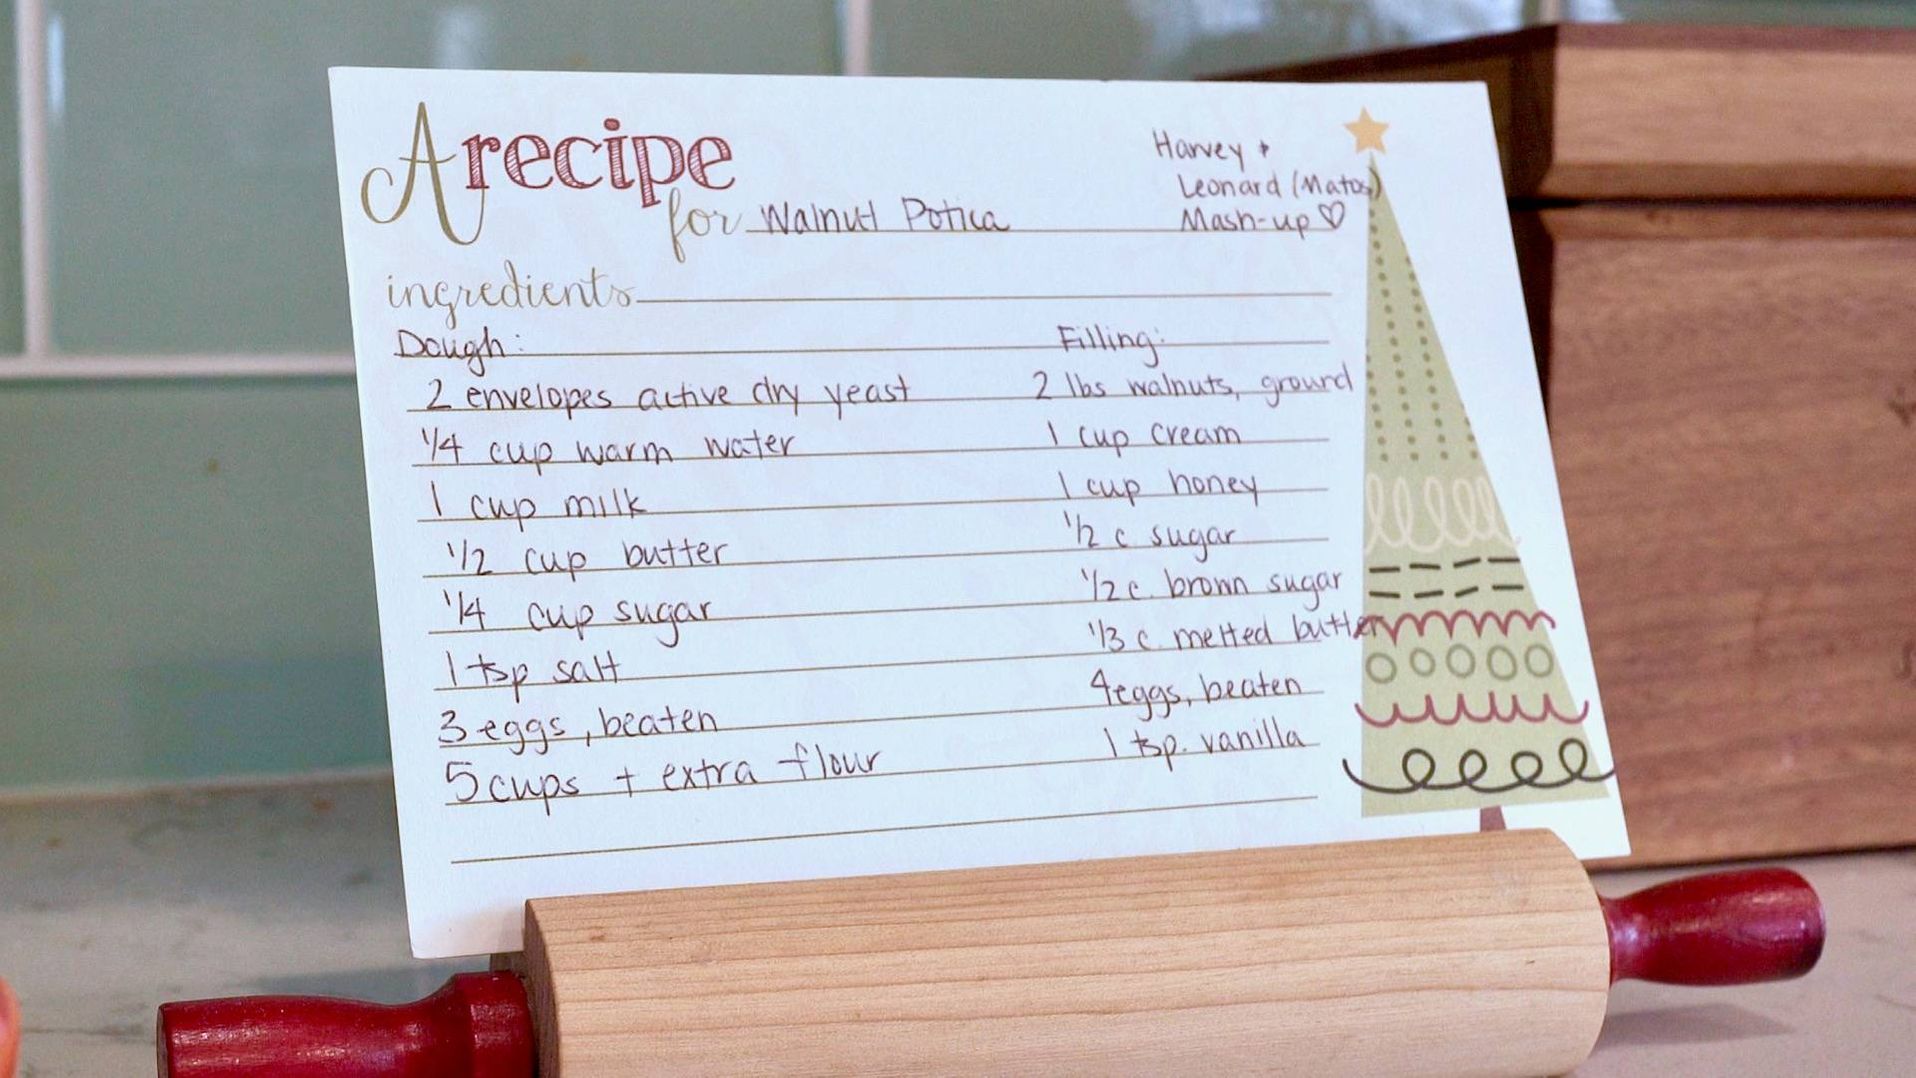 A recipe
for Walnut Potica
Harvey +
Leonard (Matos)
Mash-up ♡
ingredients
Dough:
2 envelopes active dry yeast
1/4 cup warm water
1 cup milk
1/2 cup butter
1/4 cup sugar
1 tsp salt
3 eggs, beaten
5 cups + extra flour
Filling:
2 lbs walnuts, ground
1 cup cream
1 cup honey
1/2 c sugar
1/2 c. brown sugar
1/3 c. melted butter
4 eggs, beaten
1 tsp. vanilla